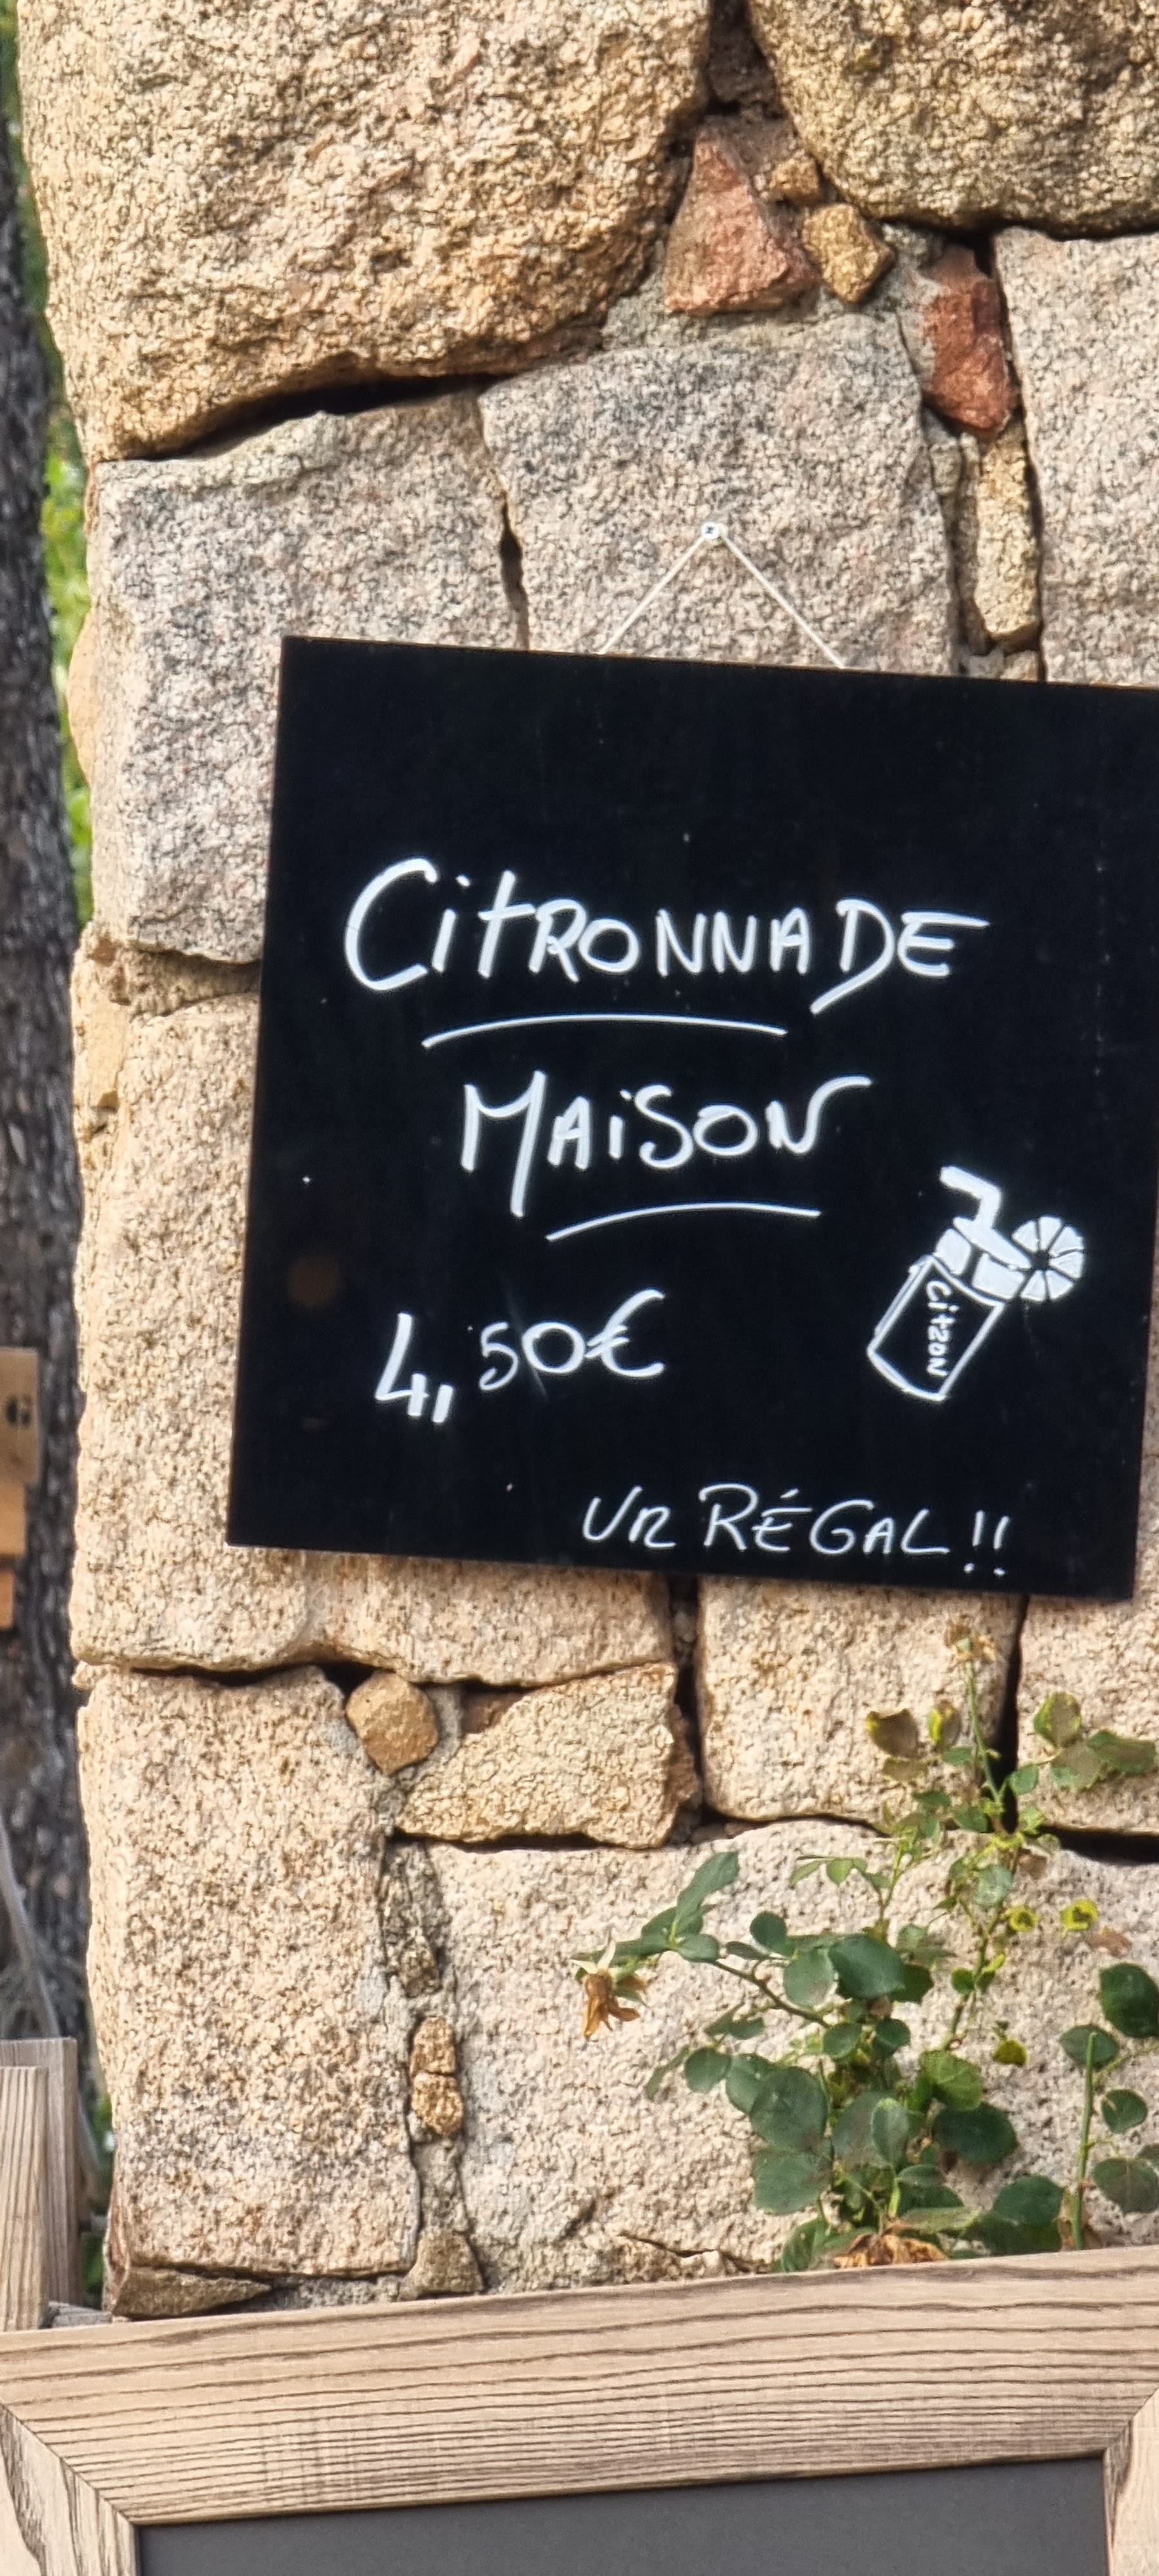 CitRONNADE
MAiSON
4,50€
CitRON
UN RÉGAL !!